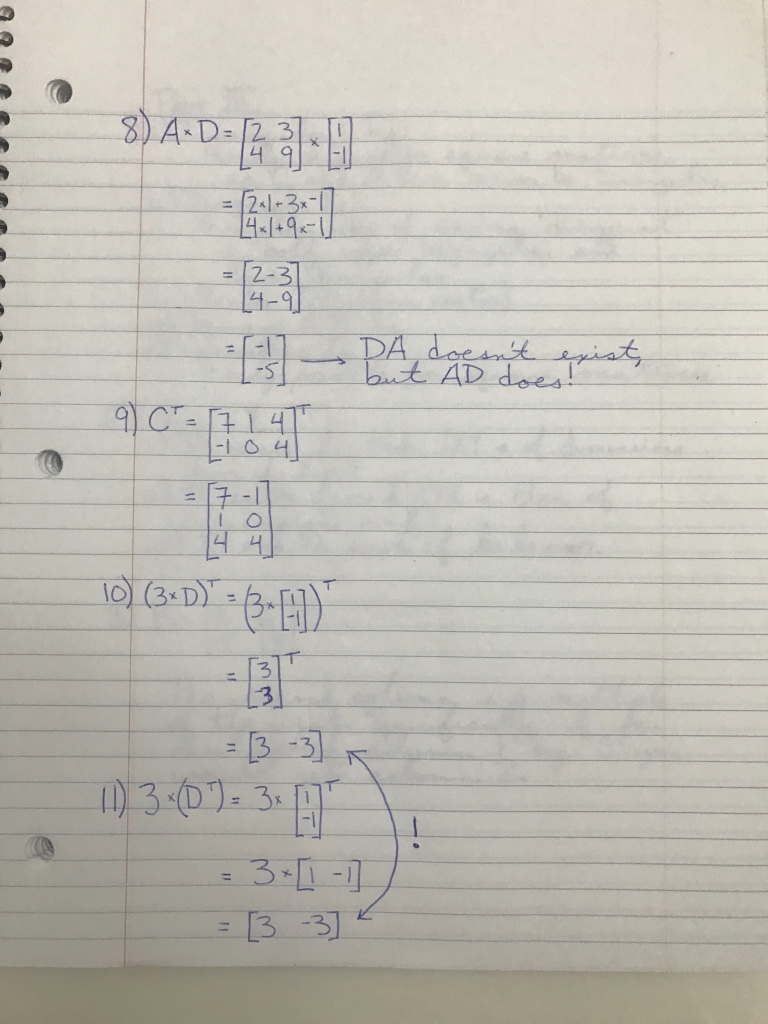 8) A×D = [2 3; 4 9] × [1; -1]
= [2×1+3×-1; 4×1+9×-1]
= [2-3; 4-9]
= [-1; -5] → DA doesn't exist,
but AD does!
9) Cᵀ = [7 1 4; -1 0 4]ᵀ
= [7 -1; 1 0; 4 4]
10) (3×D)ᵀ = (3×[1; -1])ᵀ
= [3; -3]ᵀ
= [3 -3]
11) 3×(Dᵀ) = 3×[1; -1]ᵀ
!
= 3×[1 -1]
= [3 -3]